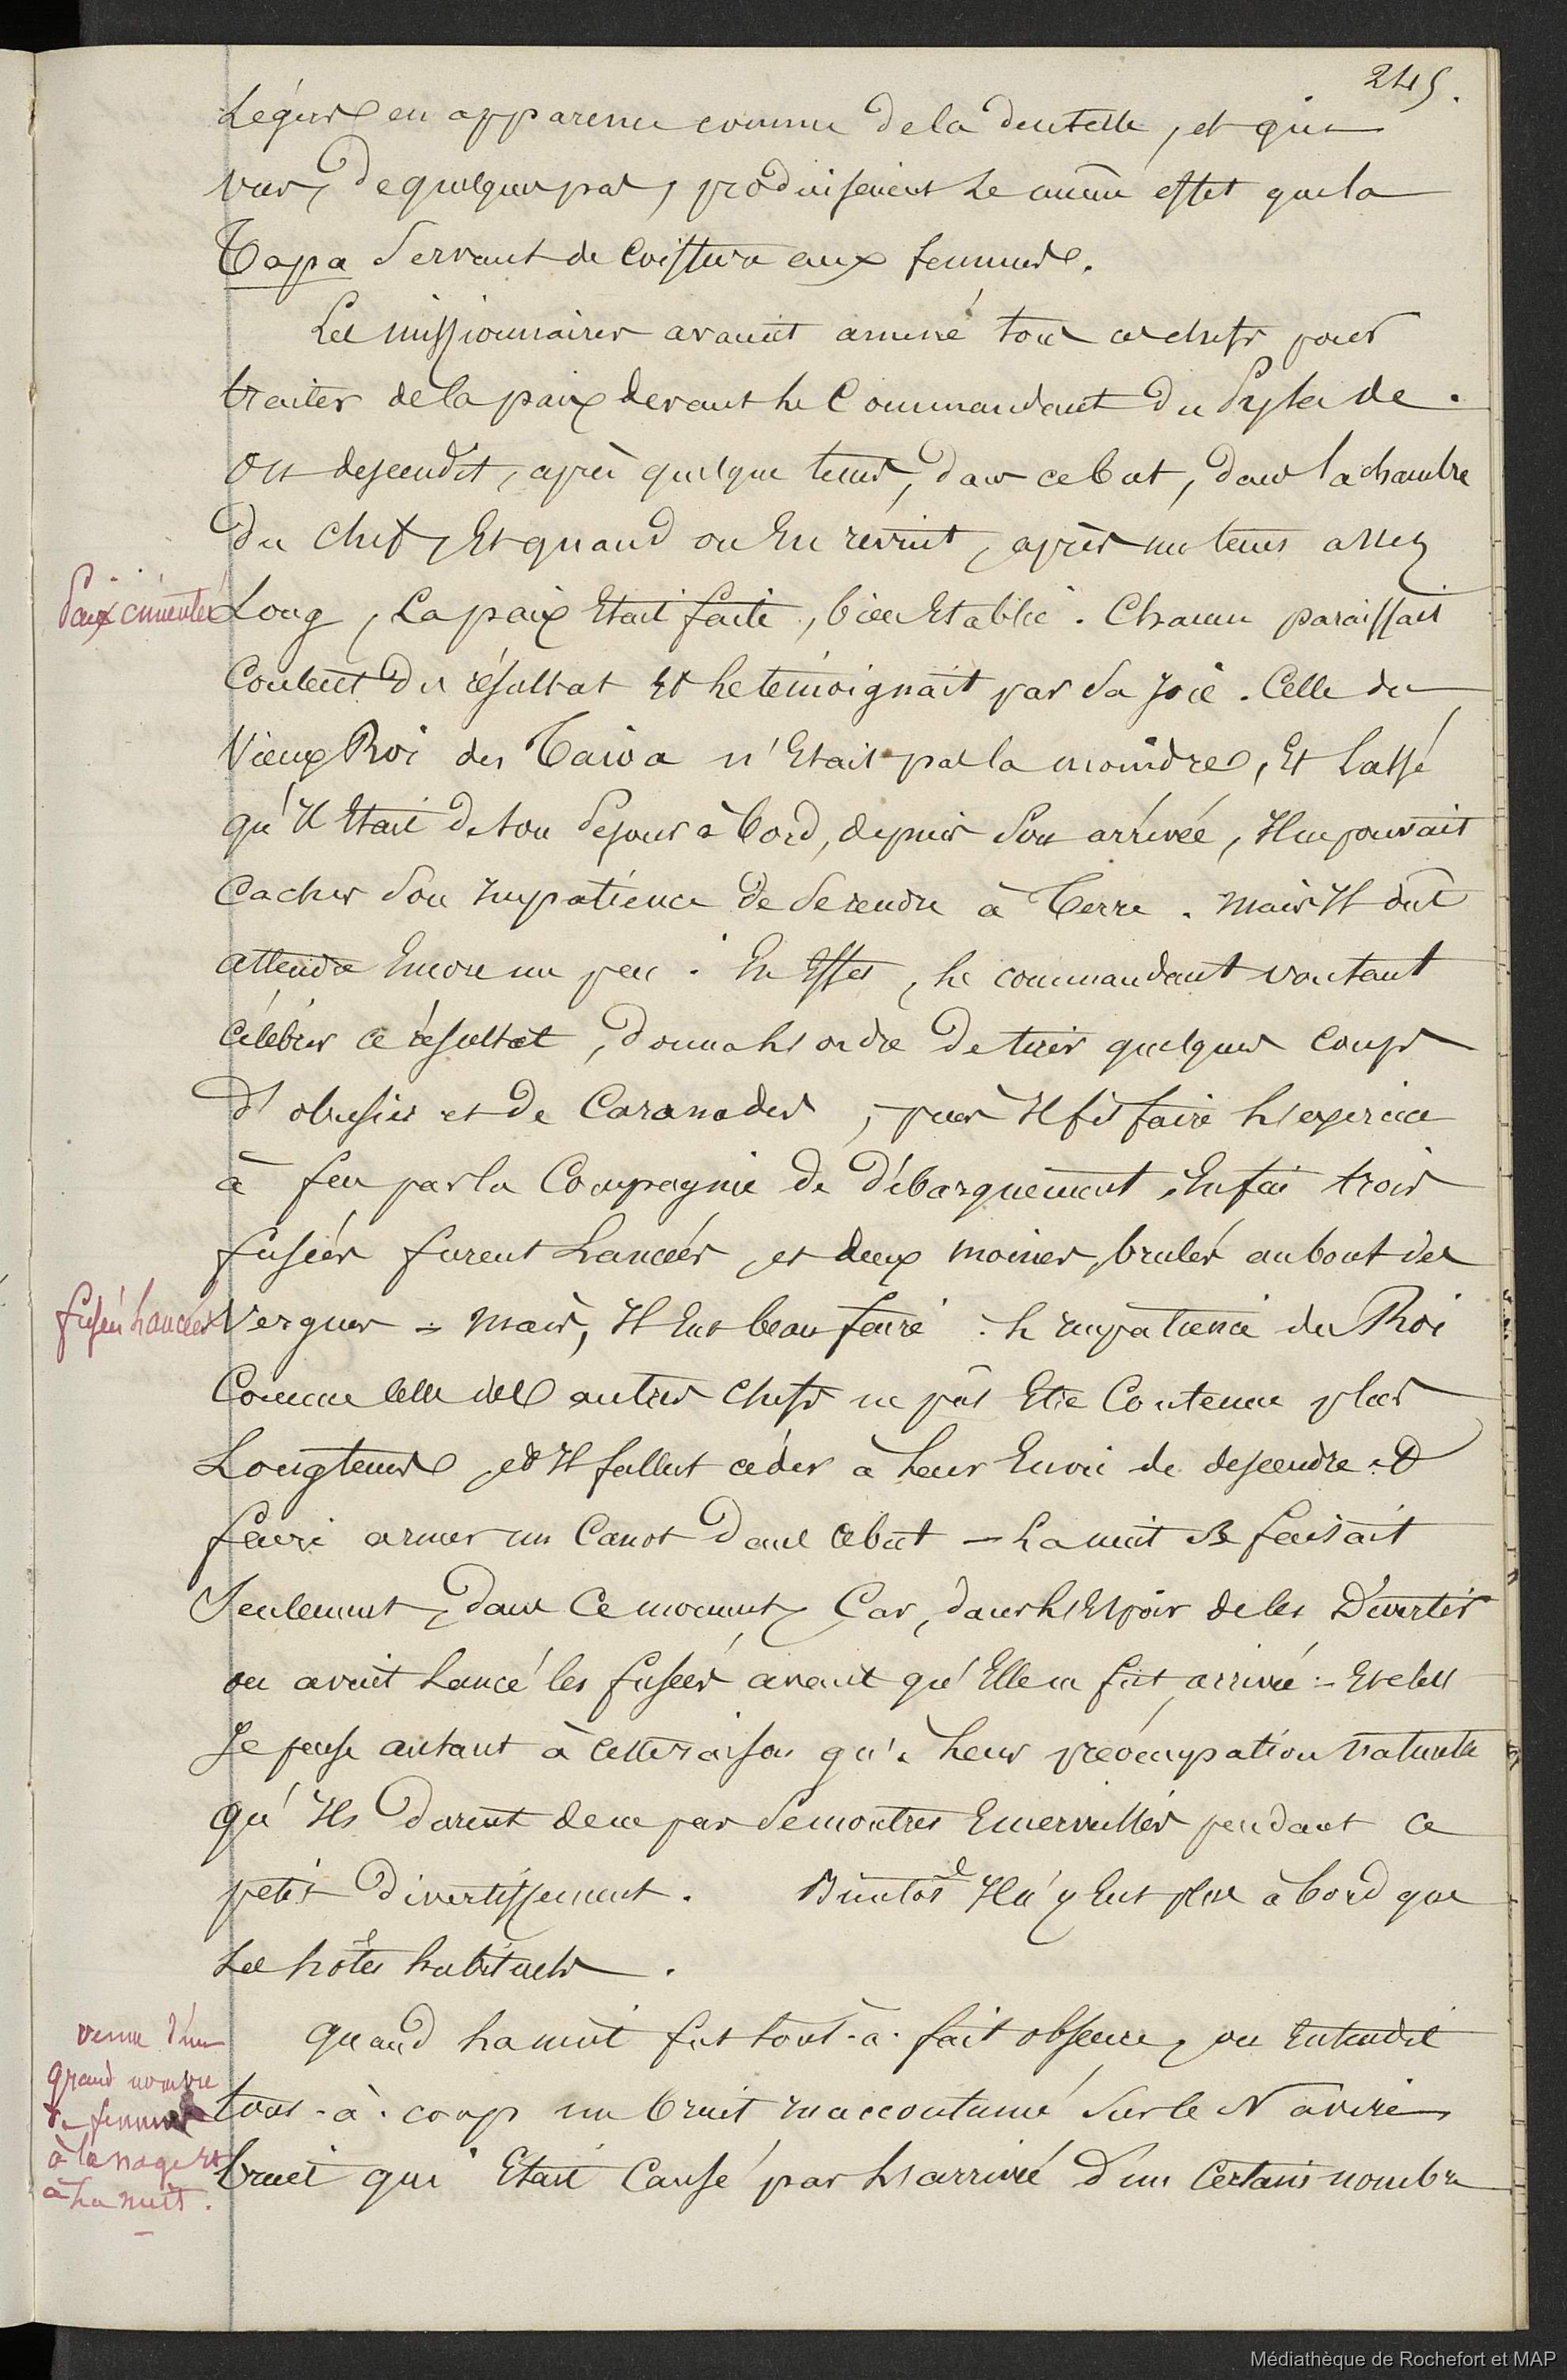 245.
Légers en apparence comme de la dentelle, et qui
vus, de quelques pas, produisaient le même effet que la
Tapa Servant de Coiffure aux femmes.
Les missionnaires avaient amené tous ces chefs pour
traiter de la paix devant le Commandant du Pylade.
On descendit, après quelque tems, dans ce but, dans la chambre
du chef, Et quand on En revint, après un tems assez
Paix cimentée
Long, La paix Etait faite, bien Etablie. Chacun paraissait
Content du résultat Et le témoignait par Sa Joie. Celle du
Vieux Roi des Taioa n'Etait pas la moindre, Et Lassé
qu'Il Etait de son Séjour à bord, depuis Son arrivée, Il ne pouvait
Cacher Son Impatience de Se rendre à Terre. Mais Il dut
attendre Encore un peu. En Effet, le commandant voulant
Célébrer ce résultat, donna L'ordre de tirer quelques Coups
d'obusier et de Caronades, puis Il fit faire L'exercice
à feu par la Compagnie de Débarquement, Enfin trois
fusées furent Lancées, et deux moines, brulés au bout des
fusées Lancées
Vergues - Mais, Il Eut beau faire. L'impatience du Roi
Comme Celle des autres Chefs ne pût Etre Contenue plus
Longtems, et Il fallut céder à Leur Envie de descendre et
faire armer un Canot dans ce but - La nuit Se faisait
Seulement, dans Ce moment, Car, dans L'Espoir de les Divertir
on avait Lancé les fusées avant qu'Elle ne fut arrivée - Et c'est
Je pense autant à Cette raison qu'à Leur préoccupation naturelle
qu'Ils durent de ne pas Se montrer Emerveillés pendant Ce
petit Divertissement. Bientot Il n'y Eut plus à bord que
Les hôtes habituels.
venue d'un
grand nombre
de femmes
à la nage et
à La nuit.
Quand La nuit fut tout-à-fait obscure, on Entendit
tout-à-coup un bruit Inaccoutumé Sur le Navire,
bruit qui Etait Causé par L'arrivée d'un Certain nombre
Médiathèque de Rochefort et MAP